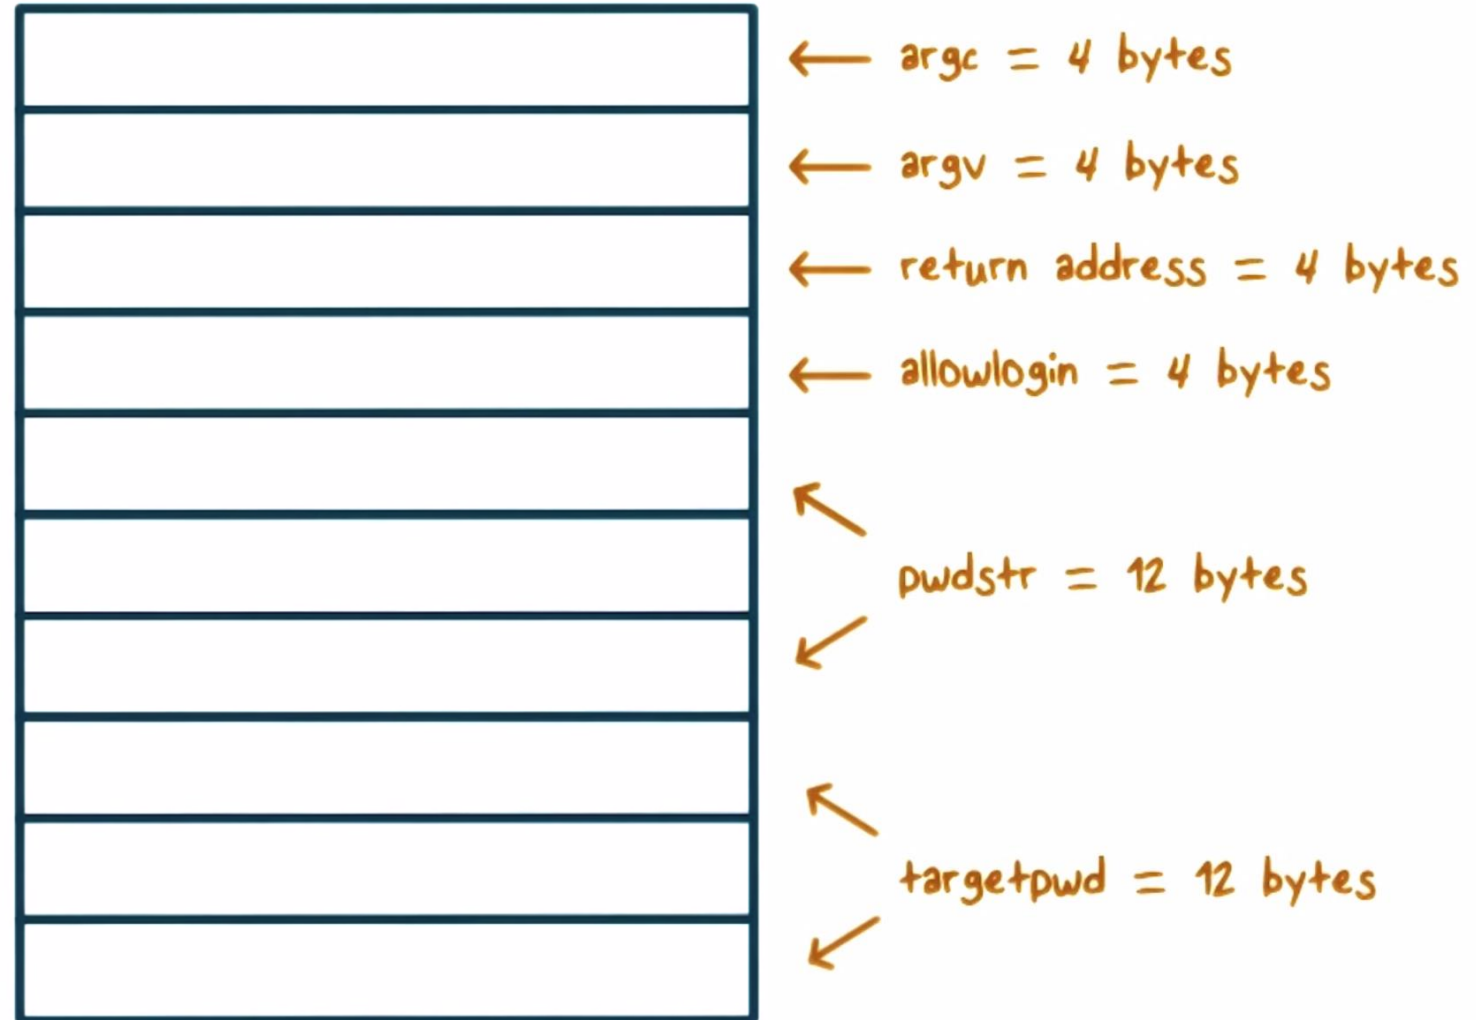 argc = 4 bytes
argv = 4 bytes
return address = 4 bytes
allowlogin = 4 bytes
pwdstr = 12 bytes
targetpwd = 12 bytes